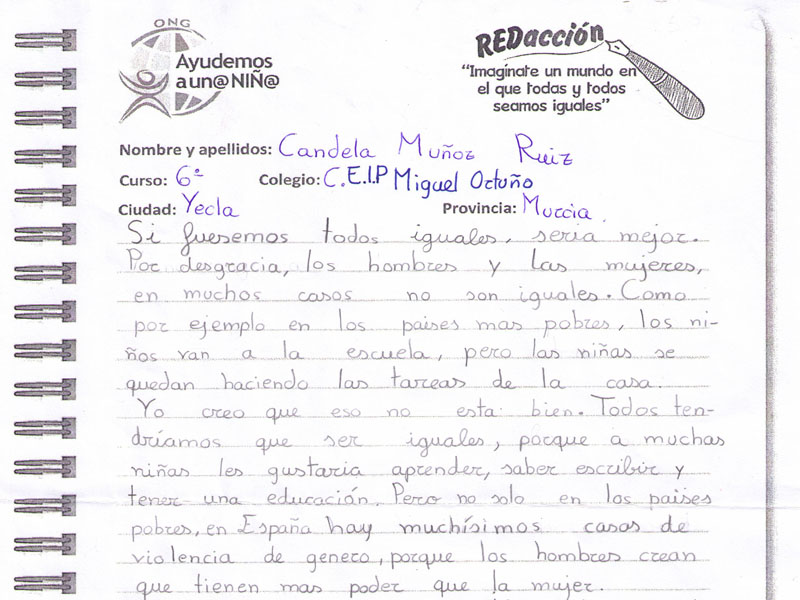 ONG
Ayudemos
a un@ NIÑ@
REDacción
"Imagínate un mundo en
el que todas y todos
seamos iguales"
Nombre y apellidos: Candela Muñoz Ruiz
Curso: 6º Colegio: C.E.I.P Miguel Ortuño
Ciudad: Yecla Provincia: Murcia.
Si fuesemos todos iguales, seria mejor.
Por desgracia, los hombres y las mujeres,
en muchos casos no son iguales. Como
por ejemplo en los paises mas pobres, los ni-
ños van a la escuela, pero las niñas se
quedan haciendo las tareas de la casa.
Yo creo que eso no esta bien. Todos ten-
dríamos que ser iguales, porque a muchas
niñas les gustaria aprender, saber escribir y
tener una educación. Pero no solo en los paises
pobres, en España hay muchísimos casos de
violencia de genero, porque los hombres crean
que tienen mas poder que la mujer.